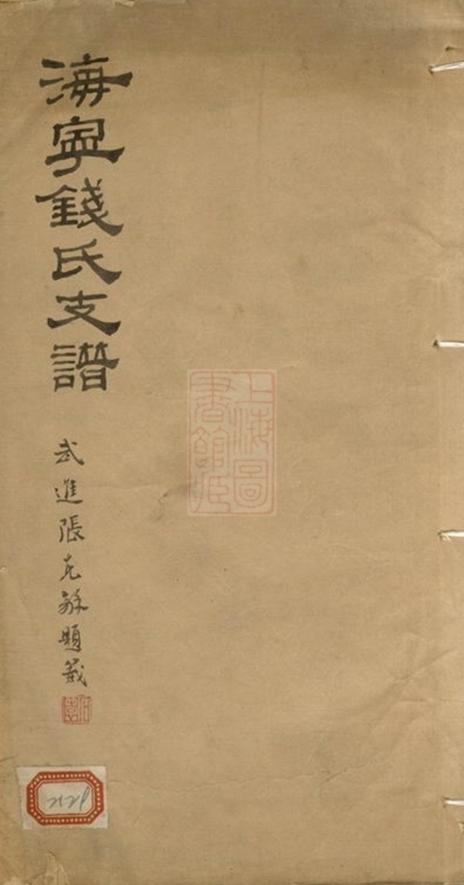 海寧錢氏支譜
武進張克龢題籤
上海圖
書館藏